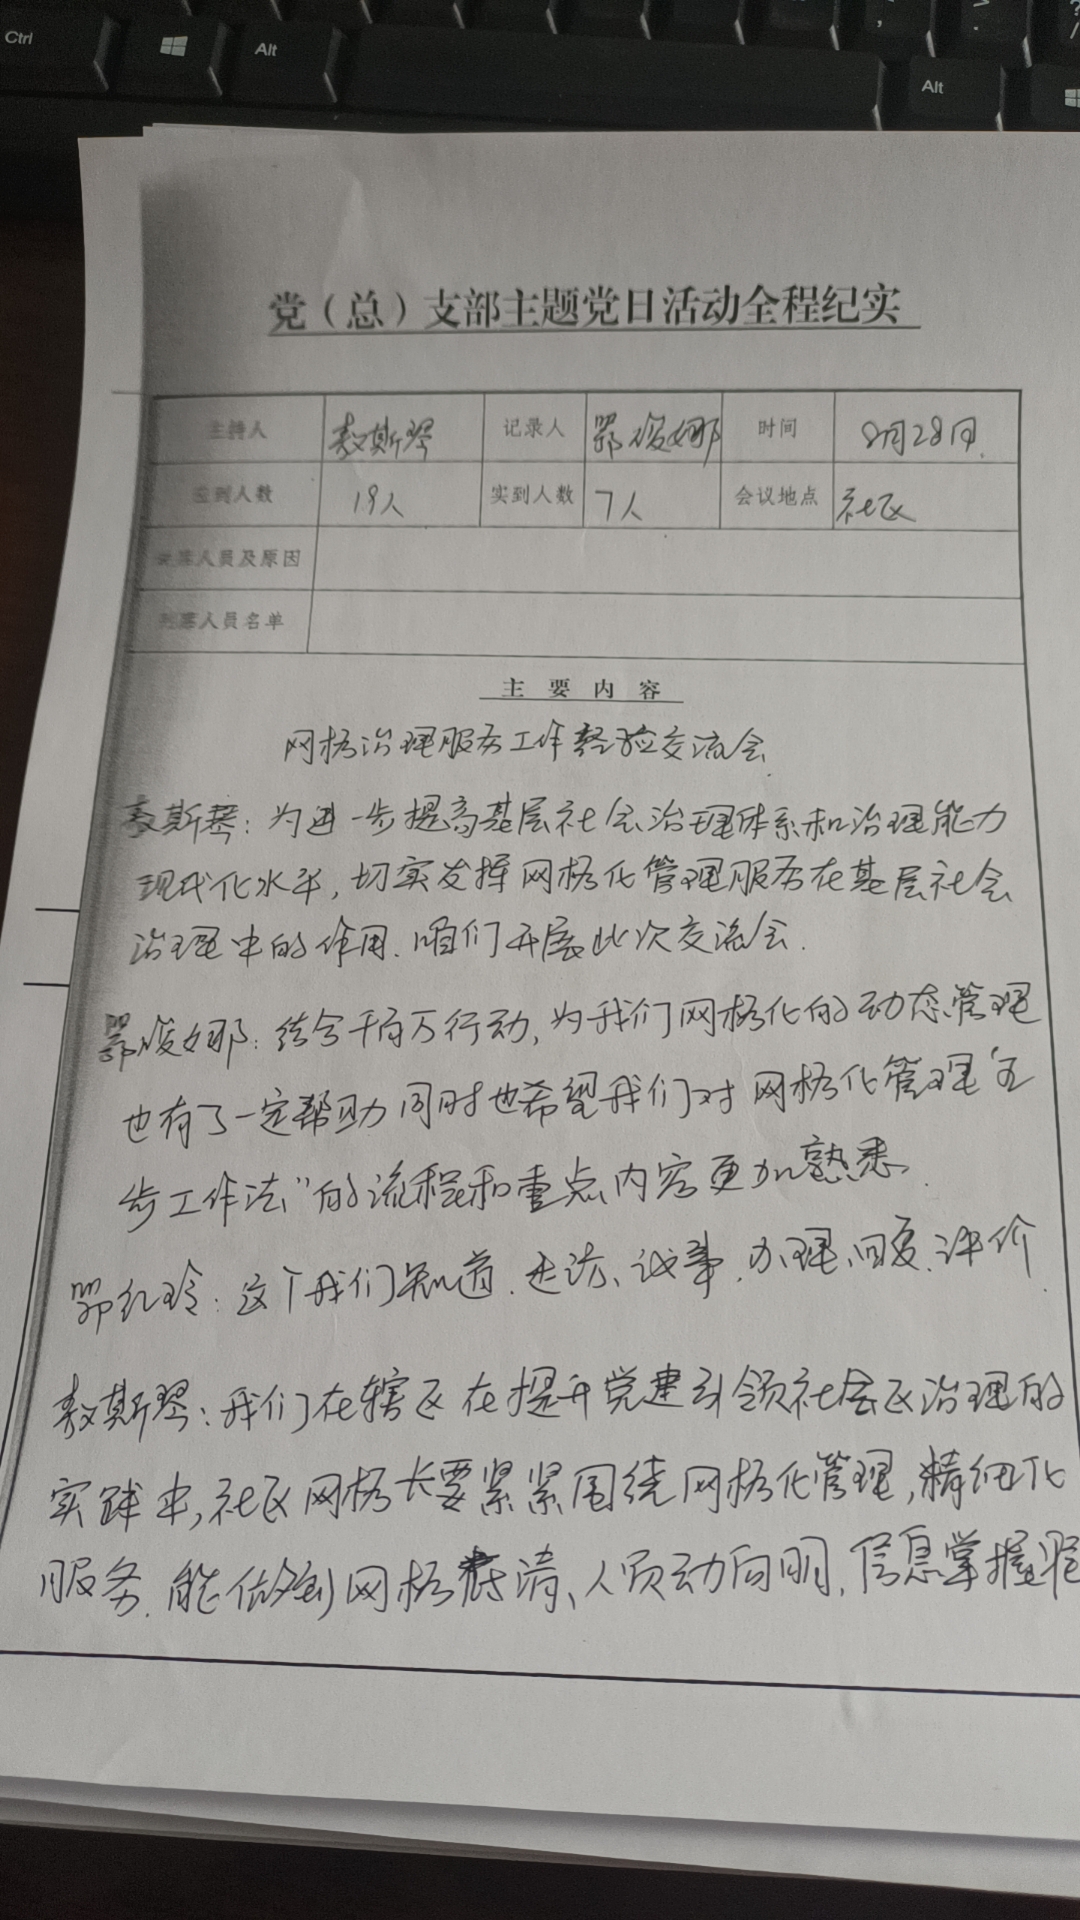 Ctrl
Alt
Alt
党（总）支部主题党日活动全程纪实
主持人 敖斯琴 记录人 鄂俊娜 时间 8月28日.
应到人数 19人 实到人数 7人 会议地点 社区
未席人员及原因
列席人员名单
主要内容
网格治理服务工作经验交流会
敖斯琴：为进一步提高基层社会治理体系和治理能力
现代化水平，切实发挥网格化管理服务在基层社会
治理中的作用.咱们开展此次交流会.
鄂俊娜：结合千百万行动，为我们网格化的动态管理
也有了一定帮助同时也希望我们对网格化管理“五
步工作法”的流程和重点内容更加熟悉.
鄂红玲：这个我们知道.走访、议事.办理、回复.评价
敖斯琴：我们在辖区在提升党建引领社会区治理的
实践中，社区网格长要紧紧围绕网格化管理，精细化
服务.能做到网格清、人员动向明、信息掌握